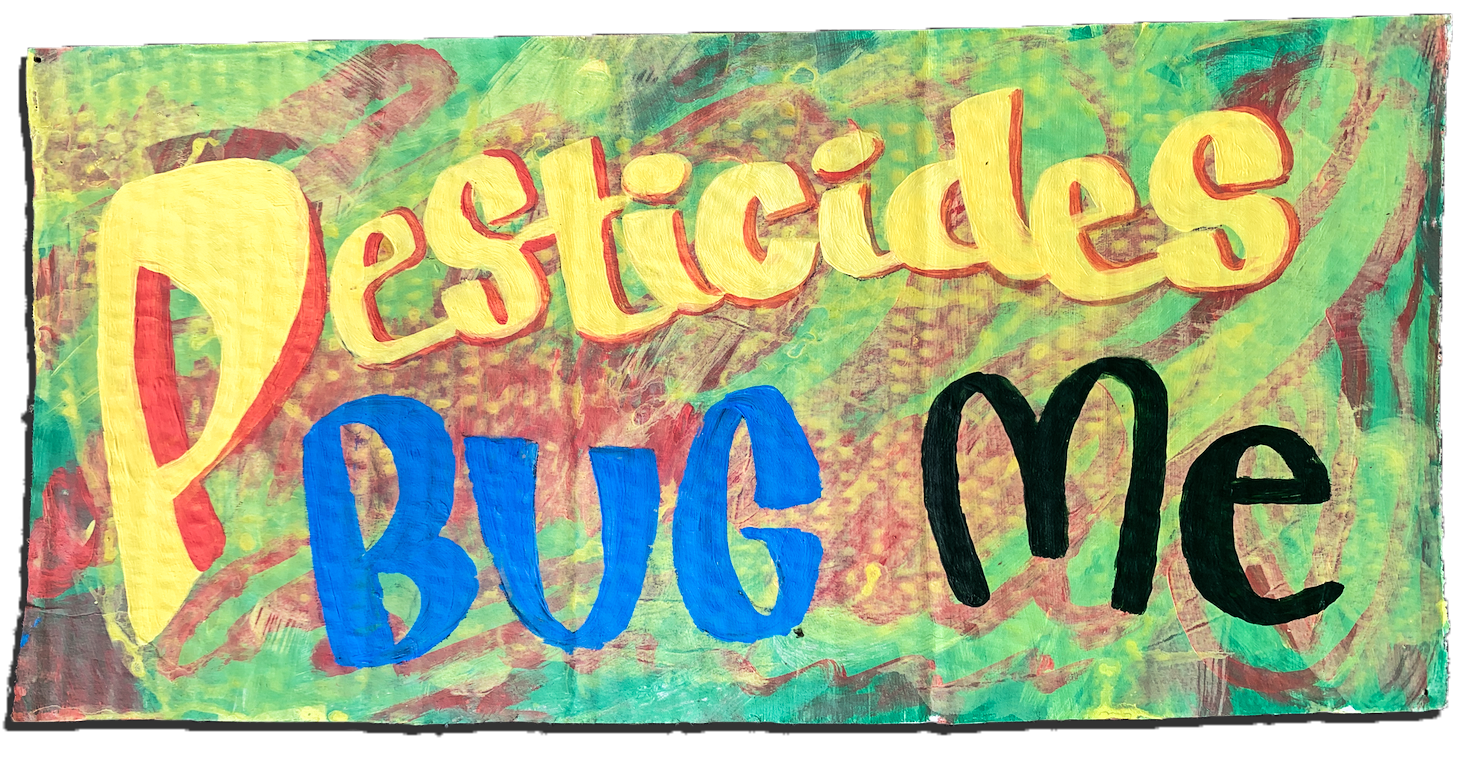 Pesticides
BUG Me